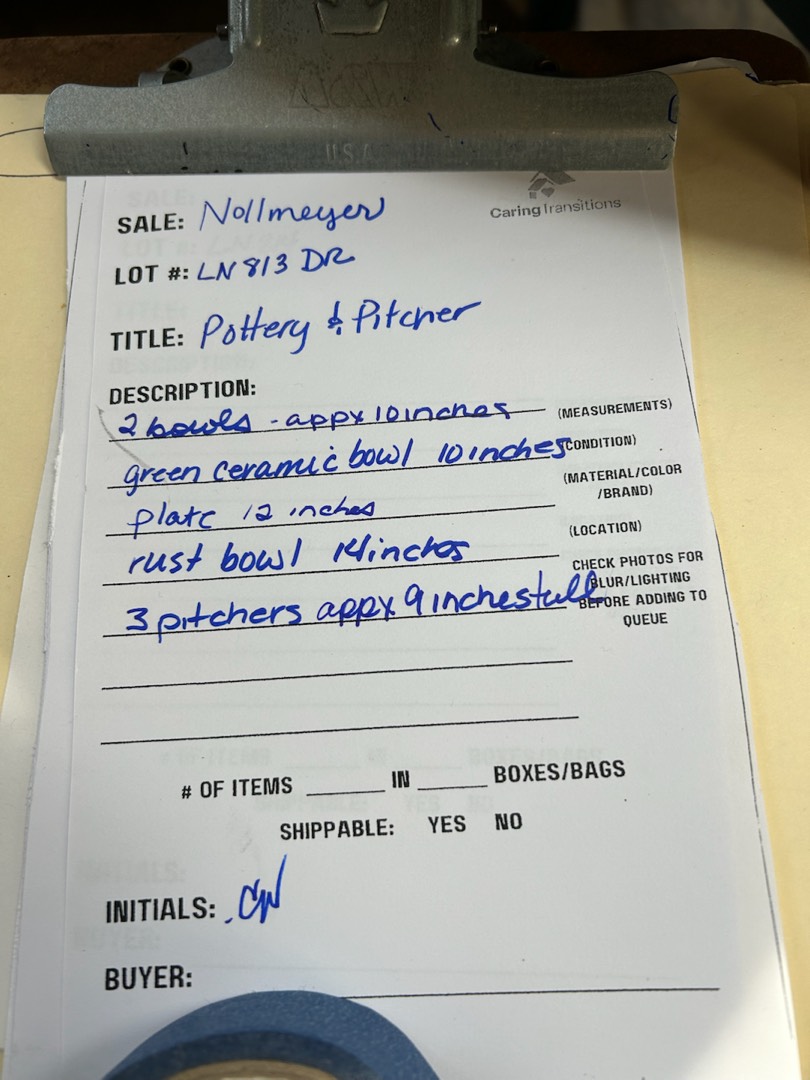 U.S.A.
CaringTransitions
SALE: Nollmeyer
LOT #: LN 813 DR
TITLE: Pottery & Pitcher
DESCRIPTION:
2 bowls - appx 10 inches (MEASUREMENTS)
green ceramic bowl 10 inches (CONDITION)
plate 12 inches (MATERIAL/COLOR
/BRAND)
rust bowl 14 inches (LOCATION)
3 pitchers appx 9 inches tall CHECK PHOTOS FOR
BLUR/LIGHTING
BEFORE ADDING TO
QUEUE
# OF ITEMS ______ IN ______ BOXES/BAGS
SHIPPABLE: YES NO
INITIALS: CW
BUYER: